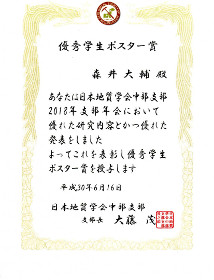 優秀学生ポスター賞
森井大輔 殿
あなたは日本地質学会中部支部
2018年支部年会において
優れた研究内容とかつ優れた
発表をしました
よってこれを表彰し優秀学生
ポスター賞を授与します
平成30年6月16日
日本地質学会中部支部
支部長 大藤 茂